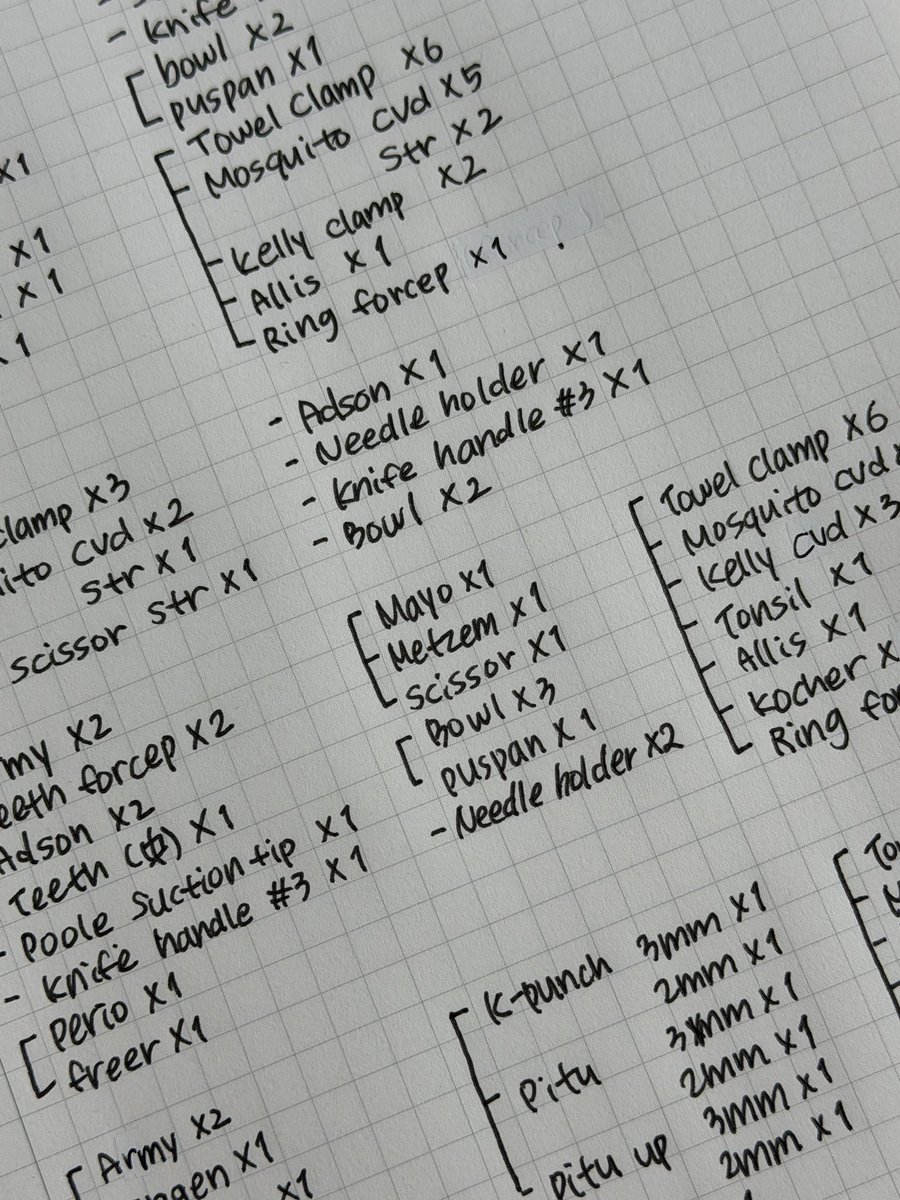 - knife
bowl x2
puspan x1
Towel clamp x6
Mosquito cvd x5
str x2
kelly clamp x2
Allis x1
Ring forcep x1
- Adson x1
- Needle holder x1
- knife handle #3 x1
- Bowl x2
Mayo x1
Metzem x1
scissor x1
Bowl x3
puspan x1
- Needle holder x2
Towel clamp x6
Mosquito cvd
kelly cvd x3
Tonsil x1
Allis x1
kocher x
Ring
k-punch 3mm x1
2mm x1
pitu 3mm x1
2mm x1
pitu up 3mm x1
2mm x1
x1
x1
x1
x1
clamp x3
cvd x2
str x1
scissor str x1
x2
forcep x2
Adson x2
Teeth (中) x1
- poole suction tip x1
- knife handle #3 x1
perio x1
freer x1
Army x2
x1
x1